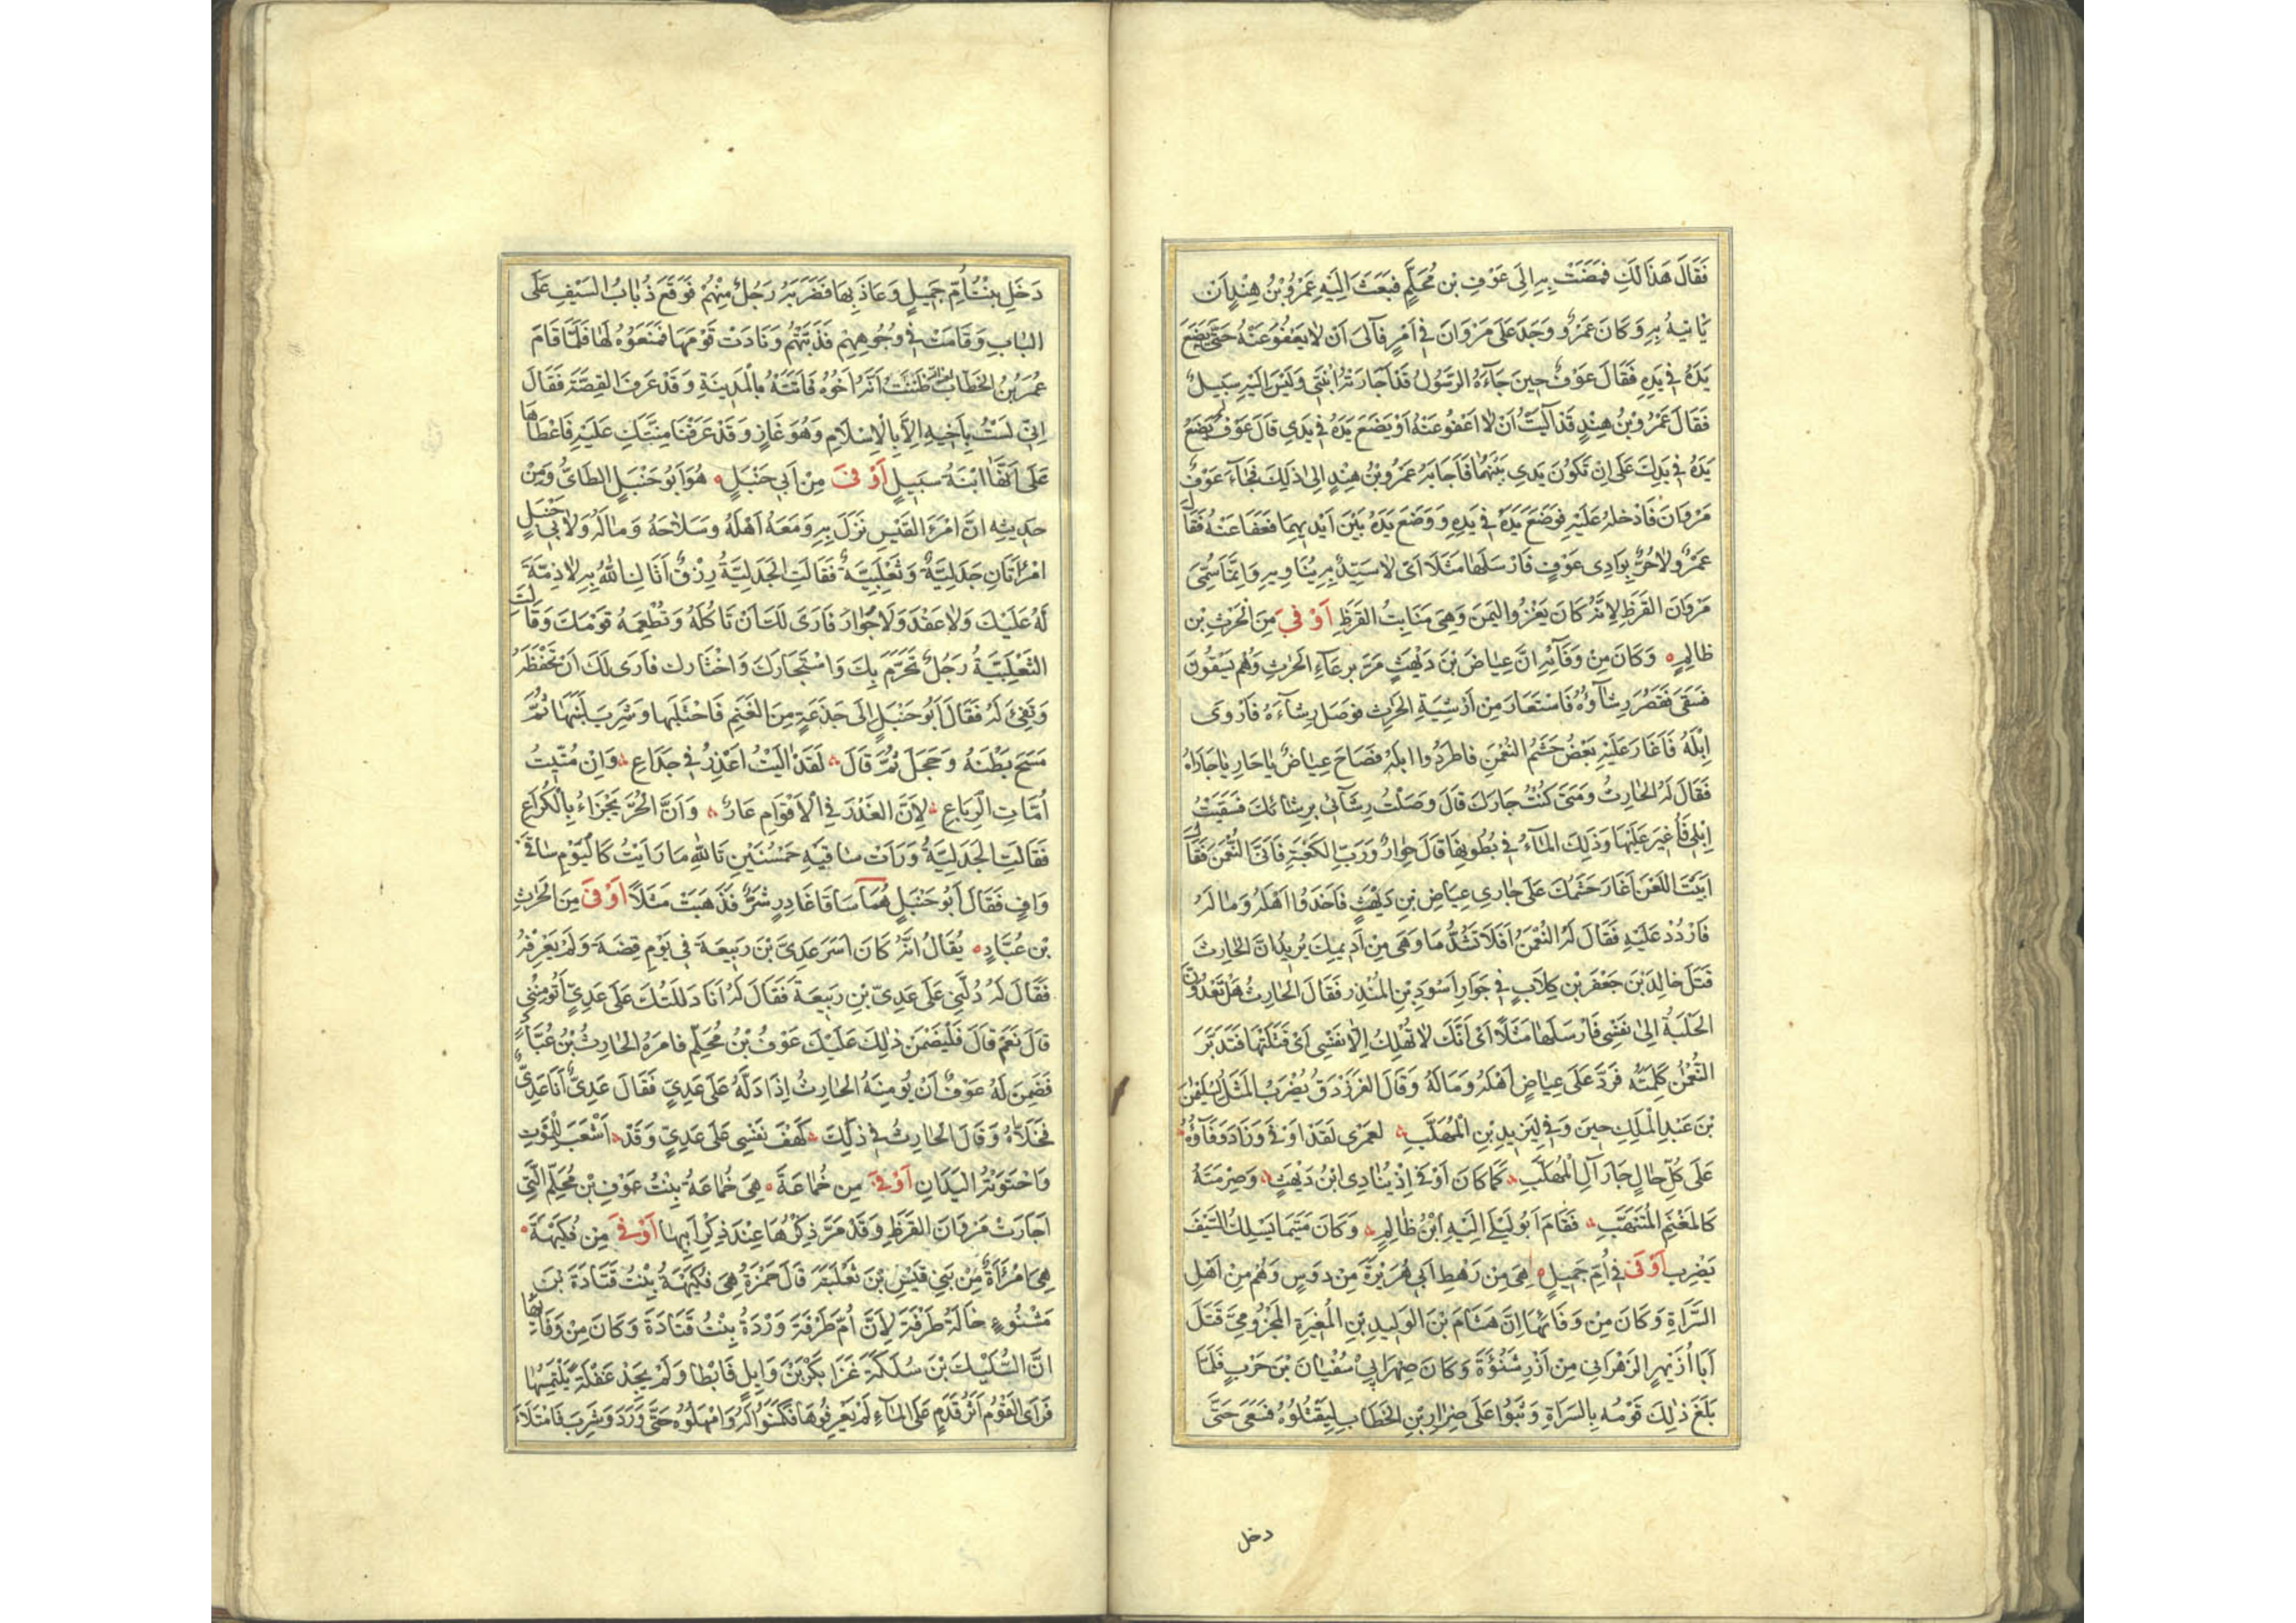 فَقَالَ هَذَا لَكِ فَمَضَتْ بِهِ اِلَى عَوْفِ بْنِ مُحَلِّمٍ فَبَعَثَ اِلَيْهِ عَمْرُو بْنُ هِنْدٍ اَنْ
يَأتِيهُ بِهِ وَكَانَ عَمْرٌو وَجَدَ عَلَى مَرْوَانَ فِي اَمْرٍ فَآلَى اَنْ لَا يَعْفُوَ عَنْهُ حَتَّى يَضَعَ
يَدَهُ فِي يَدِهِ فَقَالَ عَوْفٌ حِينَ جَآءَهُ الرَّسُولُ قَدْ اَجَارَتْهُ ابْنَتِي وَلَيْسَ اِلَيْهِ سَبِيلٌ
فَقَالَ عَمْرُو بْنُ هِنْدٍ قَدْ آلَيْتُ اَنْ لَا اَعْفُوَ عَنْهُ اَوْ يَضَعَ يَدَهُ فِي يَدِي قَالَ عَوْفٌ يَضَعُ
يَدَهُ فِي يَدِكَ عَلَى اَنْ تَكُونَ يَدِي بَيْنَهُمَا فَاَجَابَهُ عَمْرُو بْنُ هِنْدٍ اِلَى ذَلِكَ فَجَآءَ عَوْفٌ
مَرْوَانَ فَاَدْخَلَهُ عَلَيْهِ فَوَضَعَ يَدَهُ فِي يَدِهِ وَوَضَعَ يَدَهُ بَيْنَ اَيْدِيهِمَا فَعَفَا عَنْهُ فَقَالَ
عَمْرٌو لَا حُرَّ بِوَادِى عَوْفٍ فَاَرْسَلَهَا مَثَلًا اَى لَا سَيِّدٌ بِهِ يُنَاوِيهِ وَاِنَّمَا سُمِّىَ
مَرْوَانَ القَرَظِ لِاَنَّهُ كَانَ يَغْزُو اليَمَنَ وَهِيَ مَنَابِتُ القَرَظِ اَوْفَى مِنَ الحَرْثِ بْنِ
ظَالِمٍ وَكَانَ مِنْ وَفَآئِهِ اِنَّ عِيَاضَ بْنَ دَيْهَثٍ مَرَّ بِرِعَآءِ الحَرْثِ وَهُمْ يَسْقُونَ
فَسَقَى فَقَصُرَ رِشَآؤُهُ فَاسْتَعَارَ مِنْ اَرْشِيَةِ الحَرْثِ فَوَصَلَ رِشَآءَهُ فَاَرْوَى
اِبِلَهُ فَاَغَارَ عَلَيْهِ بَعْضُ حَشَمِ النُّعْمَنِ فَاطْرَدُوا اِبِلَهُ فَصَاحَ عِيَاضٌ يَا حَارِ يَا جَارَاهُ
فَقَالَ لَهُ الحَارِثُ وَمَتَى كُنْتُ جَارَكَ قَالَ وَصَلْتُ رِشَآئِي بِرِشَائِكَ فَسَقَيْتُ
اِبِلِي فَاُغِيرَ عَلَيْهَا وَذَلِكَ المَآءُ فِي بُطُونِهَا قَالَ جِوَارٌ وَرَبِّ الكَعْبَةِ فَاَتَى النُّعْمَنَ فَقَالَ
اَبَيْتَ اللَّعْنَ اَغَارَ حَشَمُكَ عَلَى جَارِي عِيَاضِ بْنِ دَيْهَثٍ فَاَخَذُوا اَهْلَهُ وَمَا لَهُ
فَارْدُدْ عَلَيْهِ فَقَالَ لَهُ النُّعْمَنُ اَفَلَا تَشُدُّ مَا وَهَى مِنْ اَدِيمِكَ يُرِيدُ اَنَّ الحَارِثَ
قَتَلَ خَالِدَ بْنَ جَعْفَرِ بْنِ كِلَابٍ فِي جَوَارِ اَسْوَدِ بْنِ المُنْذِرِ فَقَالَ الحَارِثُ هَلْ تَعْدُوَنَّ
الحَلْبَةُ اِلَى نَفْسِي فَاَرْسَلَهَا مَثَلًا اَىْ اَنَّكَ لَا تُهْلِكُ اِلَّا نَفْسِي اَىْ قَتَلْتَهَا فَتَدَبَّرَ
النُّعْمَنُ كَلِمَتَهُ فَرَدَّ عَلَى عِيَاضٍ اَهْلَهُ وَمَالَهُ وَقَالَ الفَرَزْدَقُ يُضْرَبُ المَثَلُ لِسُلَيْمَنَ
بْنِ عَبْدِ المَلِكِ حِينَ وَفَى لِيَزِيدِ بْنِ المُهَلَّبِ لَعَمْرِى لَقَدْ اَوْفَى وَزَادَ وَفَآؤُهُ
عَلَى كُلِّ حَالٍ جَارَ آلِ المُهَلَّبِ كَمَا كَانَ اَوْفَى اِذْ يُنَادِى ابْنُ دَيْهَثٍ وَصِرْمَتُهُ
كَالمَغْنَمِ المُتَنَهَّبِ فَقَامَ اَبُو لَيْلَى اِلَيْهِ ابْنُ ظَالِمٍ وَكَانَ مَتَى مَا يَسْلُلِ السَّيْفَ
يَضْرِبِ اَوْفَى فِي اُمِّ جَمِيلٍ هِيَ مِنْ رَهْطِ اَبِي هُرَيْرَةَ مِنْ دَوْسٍ وَهُمْ مِنْ اَهْلِ
السَّرَاةِ وَكَانَ مِنْ وَفَائِهَا اِنَّ هِشَامَ بْنَ الوَلِيدِ بْنِ المُغِيرَةِ المَخْزُومِيَّ قَتَلَ
اَبَا اُزَيْهِرِ الزَهْرَانِي مِنْ اَزْدِ شَنُوءَةَ وَكَانَ صِهْرَ اَبِي سُفْيَانَ بْنَ حَرْبٍ فَلَمَّا
بَلَغَ ذَلِكَ قَوْمَهُ بِالسَرَاةِ وَثَبُوا عَلَى ضِرَارِ بْنِ الخَطَّابِ لِيَقْتُلُوهُ فَسَعَى حَتَّى
دخل
دَخَلَ بَيْتَ اُمِّ جَمِيلٍ وَعَاذَ بِهَا فَضَرَبَهُ رَجُلٌ مِنْهُمْ فَوَقَعَ ذُبَابُ السَيْفِ عَلَى
البَابِ وَقَامَتْ فِي وُجُوهِهِمْ فَذَبَّتْهُمْ وَنَادَتْ قَوْمَهَا فَمَنَعُوْهُ لَهَا فَلَمَّا قَامَ
عُمَرُ بْنُ الخَطَّابِ ظَنَنَتْ اَنَّهُ اَخُوهُ فَاَتَتْهُ بِالْمَدِينَةِ وَقَدْ عَرَفَ القِصَّةَ فَقَالَ
اِنِّي لَسْتُ بِاَخِيهِ اِلَّا بِالْاِسْلَامِ وَهُوَ غَازٍ وَقَدْ عَرَفْنَا مِنَّتَكِ عَلَيْهِ فَاَعْطَاهَا
عَلَى اَنَّهَا ابْنَةُ سَبِيلٍ اَوْفَى مِنْ اَبِي حَنْبَلٍ هُوَ اَبُو حَنْبَلٍ الطَائِيُّ وَمِنْ
حَدِيثِهِ اَنَّ امْرَءَ القَيْسِ نَزَلَ بِهِ وَمَعَهُ اَهْلُهُ وَسَلَاحَهُ وَمَالَهُ وَلِاَبِي حَنْبَلٍ
امْرَاَتَانِ جَدَلِيَّةٌ وَثَعْلَبِيَّةٌ فَقَالَتِ الجَدَلِيَّةُ رِزْقٌ اَتَانَا اللهُ بِهِ لَا ذِمَّةَ
لَهُ عَلَيْكَ وَلَا عَقْدَ وَلَا جِوَارَ فَاَرَى لَكَ اَنْ تَاكُلَهُ وَتُطْعِمَهُ قَوْمَكَ وَقَالَتِ
الثَعْلَبِيَّةُ رَجُلٌ تَحَرَّمَ بِكَ وَاسْتَجَارَكَ وَاخْتَارَكَ فَاَرَى لَكَ اَنْ تَحْفَظَهُ
وَتَفِيَ لَهُ فَقَامَ اَبُو حَنْبَلٍ اِلَى جَذَعَةٍ مِنَ الغَنَمِ فَاحْتَلَبَهَا وَشَرِبَ لَبَنَهَا ثُمَّ
مَسَحَ بَطْنَهُ وَحَجَلَ ثُمَّ قَالَ لَقَدْ آلَيْتُ اَغْدِرُ فِي جَدَاعِ وَاِنْ مُنِّيتُ
اُمَّاتِ الرِبَاعِ لِاَنَّ الغَدْرَ فِي الْاَقْوَامِ عَارٌ وَاَنَّ الحُرَّ يَجْزَاءُ بِالْكُرَاعِ
فَقَالَتِ الجَدَلِيَّةُ وَرَاَتْ سَاقَيْهِ حَمْشَيْنِ تَاللهِ مَا رَاَيْتُ كَالْيَوْمِ سَاقَيْ
وَافٍ فَقَالَ اَبُو حَنْبَلٍ هُمَا سَاقَا غَادِرٍ شَرٌّ فَذَهَبَتْ مَثَلًا اَوْفَى مِنَ الحَرْثِ
بْنِ عُبَّادٍ يُقَالُ اِنَّهُ كَانَ اَسَرَ عَدِىَّ بْنَ رَبِيعَةَ فِي يَوْمِ قِضَةَ وَلَمْ يَعْرِفْهُ
فَقَالَ لَهُ دُلَّنِي عَلَى عَدِىِّ بْنِ رَبِيعَةَ فَقَالَ لَهُ اَنَا دَلَلْتُكَ عَلَى عَدِيٍّ اَتُؤمِنُنِي
قَالَ نَعَمْ قَالَ فَلْيَضْمَنْ ذَلِكَ عَلَيْكَ عَوْفُ بْنُ مُحَلِّمٍ فَاَمَرَهُ الحَارِثُ بْنُ عُبَّادٍ
فَضَمِنَ لَهُ عَوْفٌ اَنْ يُؤمِنَهُ الحَارِثُ اِذَا دَلَّهُ عَلَى عَدِيٍّ فَقَالَ عَدِيٌّ اَنَا عَدِيٌّ
فَخَلَّاهُ وَقَالَ الحَارِثُ فِي ذَلِكَ لَهْفَ نَفْسِي عَلَى عَدِيٍّ وَقَدْ اَشْعَبَ لِلْمَوْتِ
وَاحْتَوَتْهُ اليَدَانِ اَوْفَى مِن خُمَاعَةَ هِيَ خُمَاعَةُ بِنْتُ عَوْفِ بْنِ مُحَلِّمٍ الَّتِي
اَجَارَتْ مَرْوَانَ القَرَظِ وَقَدْ مَرَّ ذِكْرُهَا عِنْدَ ذِكْرِ اَبِيهَا اَوْفَى مِن فُكَيْهَةَ
هِيَ امْرَاَةٌ مِنْ بَنِي قَيْسِ بْنِ ثَعْلَبَةَ قَالَ حَمْزَةُ هِيَ فُكَيْهَةُ بِنْتُ قَتَادَةَ بْنِ
مَشْنُوءٍ خَالَةُ طَرْفَةَ لِاَنَّ اُمَّ طَرْفَةَ وَرْدَةُ بِنْتُ قَتَادَةَ وَكَانَ مِنْ وَفَائِهَا
اَنَّ السُّلَيْكَ بْنَ سُلَكَةَ غَزَا بَكْرَ بْنَ وَايِلٍ فَابْطَا وَلَمْ يَجِدْ غَفْلَةً يَلْتَمِسُهَا
فَرَاَى القَوْمُ اَثَرَ قَدَمٍ عَلَى المَآءِ لَمْ يَعْرِفُوهَا فَكَمَنُوا لَهُ وَامْهَلُوهُ حَتَّى وَرَدَ وَشَرِبَ فَامْتَلَاَ